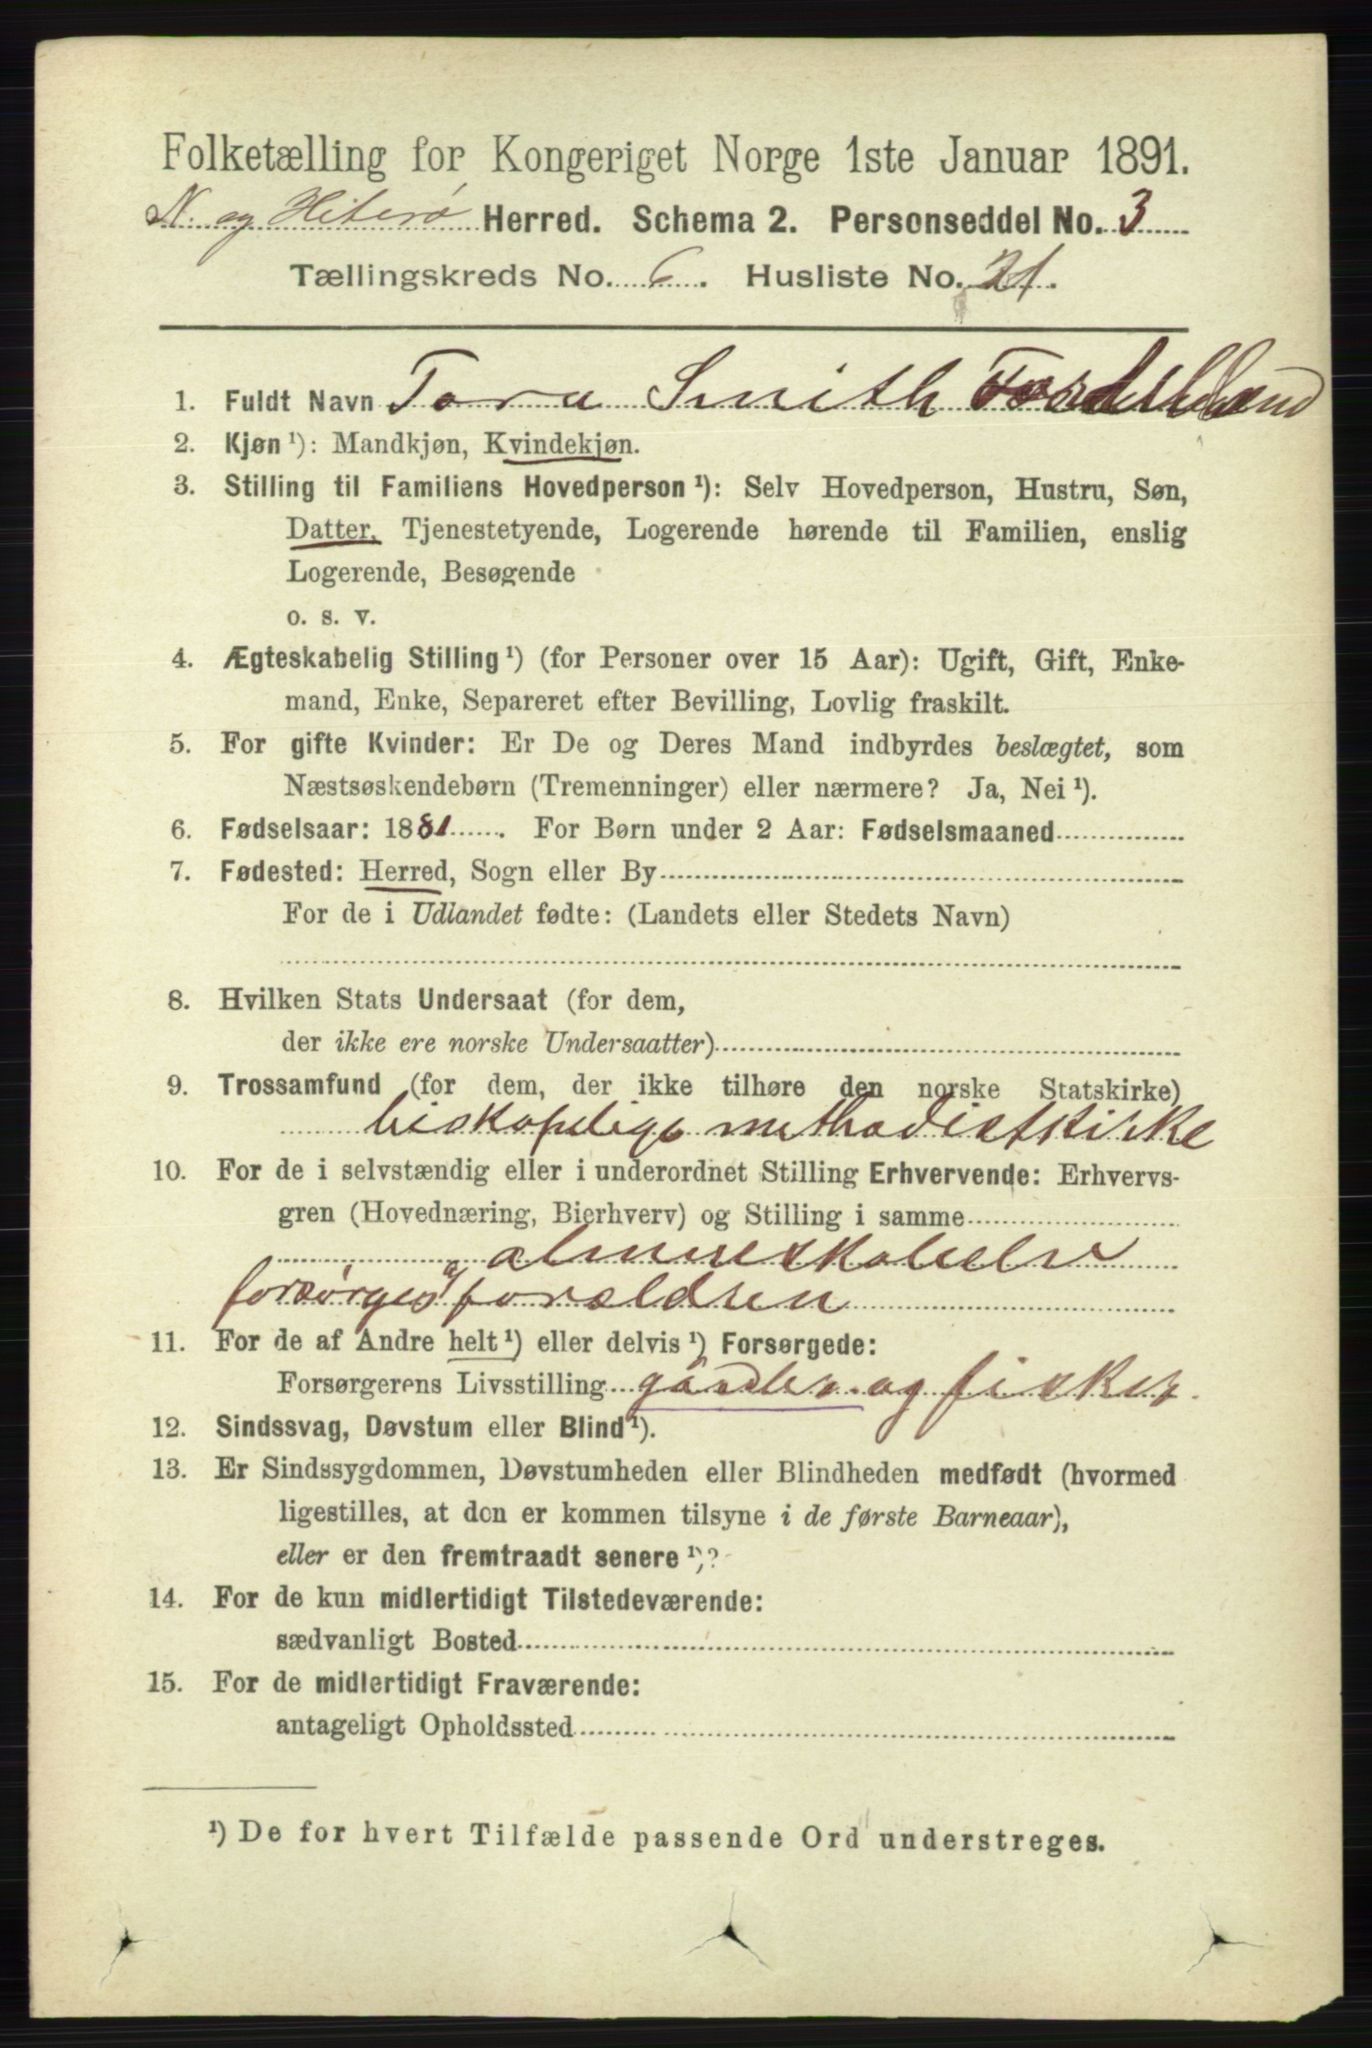 Folketælling for Kongeriget Norge 1ste Januar 1891.
N. og Hiterø Herred. Schema 2. Personseddel No. 3
Tællingskreds No. 6. Husliste No. 21.
1. Fuldt Navn Tora Smith
2. Kjøn ¹): Mandkjøn, Kvindekjøn.
3. Stilling til Familiens Hovedperson ¹): Selv Hovedperson, Hustru, Søn,
Datter, Tjenestetyende, Logerende hørende til Familien, enslig
Logerende, Besøgende
o. s. v.
4. Ægteskabelig Stilling ¹) (for Personer over 15 Aar): Ugift, Gift, Enke-
mand, Enke, Separeret efter Bevilling, Lovlig fraskilt.
5. For gifte Kvinder: Er De og Deres Mand indbyrdes beslægtet, som
Næstsøskendebørn (Tremenninger) eller nærmere? Ja, Nei ¹).
6. Fødselsaar: 1881. For Børn under 2 Aar: Fødselsmaaned
7. Fødested: Herred, Sogn eller By
For de i Udlandet fødte: (Landets eller Stedets Navn)
8. Hvilken Stats Undersaat (for dem,
der ikke ere norske Undersaatter)
9. Trossamfund (for dem, der ikke tilhøre den norske Statskirke)
biskopelige methodistkirke
10. For de i selvstændig eller i underordnet Stilling Erhvervende: Erhvervs-
gren (Hovednæring, Bierhverv) og Stilling i samme
almueskoleelev
forsørges af forældren
11. For de af Andre helt ¹) eller delvis ¹) Forsørgede:
Forsørgerens Livsstilling gårdbr. og fisker.
12. Sindssvag, Døvstum eller Blind ¹).
13. Er Sindssygdommen, Døvstumheden eller Blindheden medfødt (hvormed
ligestilles, at den er kommen tilsyne i de første Barneaar),
eller er den fremtraadt senere ¹)?
14. For de kun midlertidigt Tilstedeværende:
sædvanligt Bosted
15. For de midlertidigt Fraværende:
antageligt Opholdssted
¹) De for hvert Tilfælde passende Ord understreges.